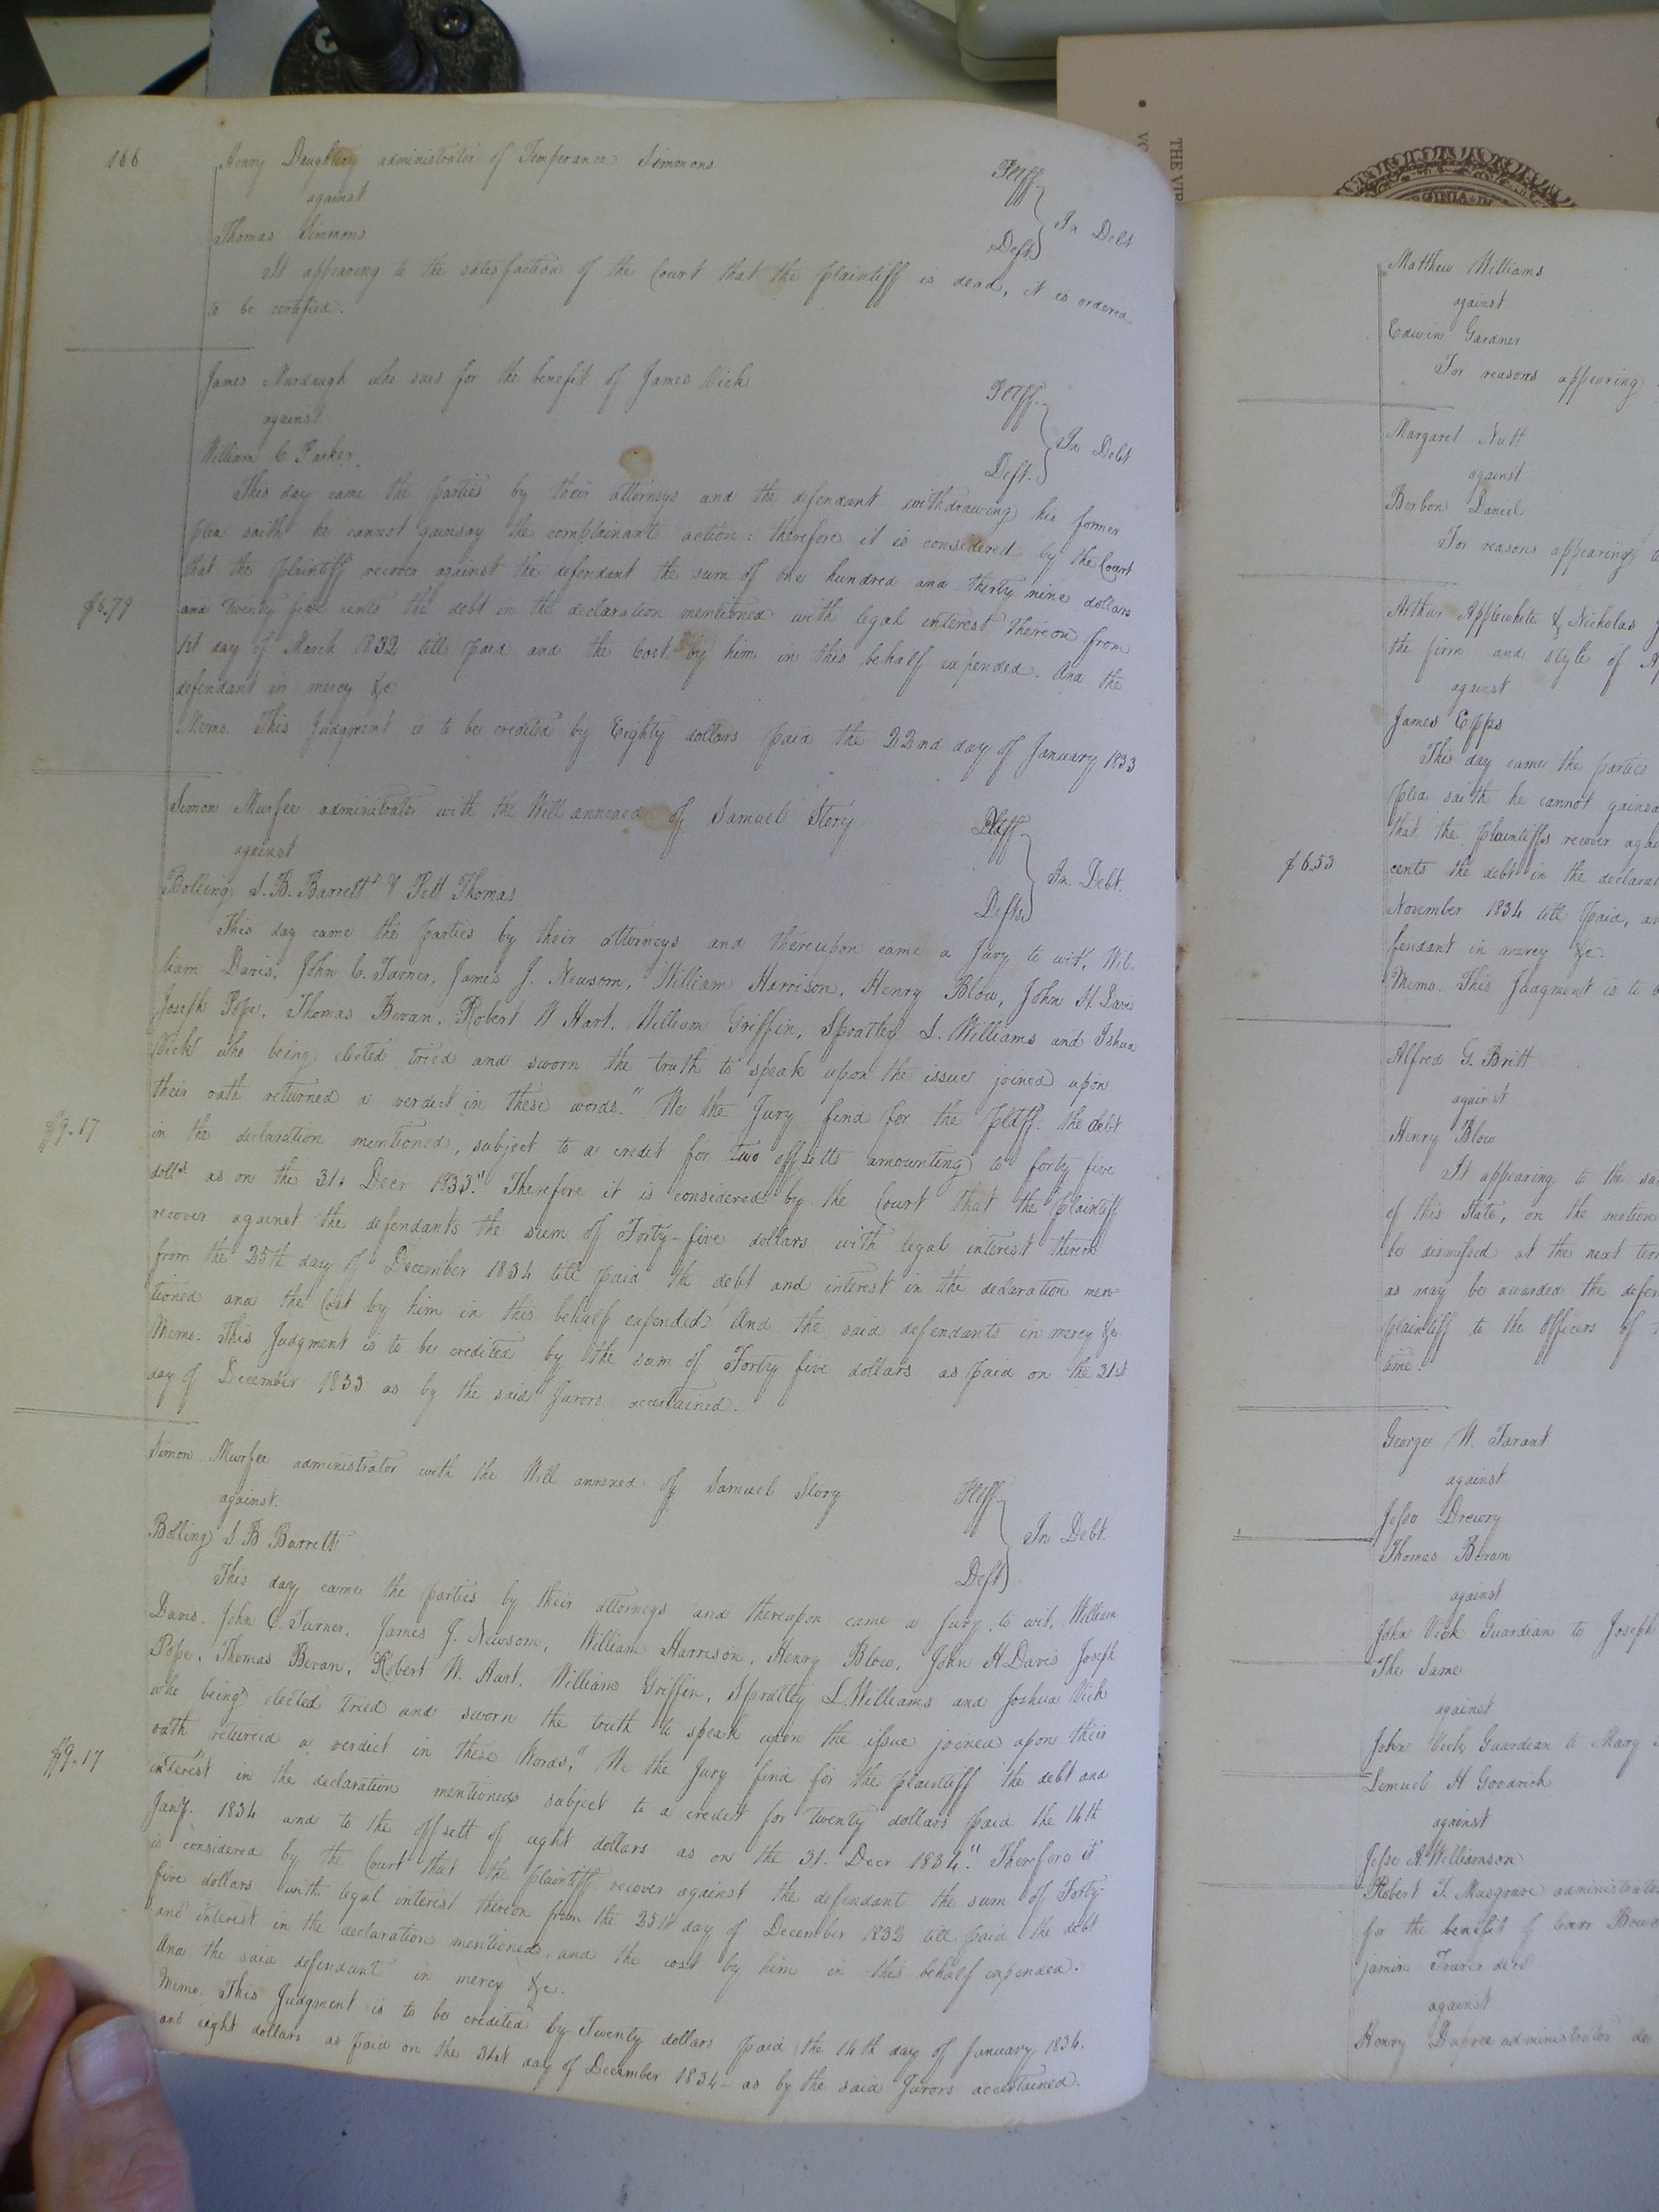 166
Henry Daughtrey administrator of Temperance Simmons Pltff
against
In Debt
Thomas Simmons Deft
It appearing to the satisfaction of the Court that the plaintiff is dead, it is ordered
to be certified.
James Murdaugh who sues for the benefit of James Vick Pltff.
against
In Debt
William C Parker Deft.
This day came the parties by their attorneys and the defendant withdrawing his former
plea saith he cannot gainsay the complainants action: therefore it is considered by the Court
that the plaintiff recover against the defendant the sum of one hundred and thirty nine dollars
$6.79
and twenty five cents the debt in the declaration mentioned with legal interest thereon from
1st day of March 1832 till paid and the Cost by him in this behalf expended. And the
defendant in mercy &c
Memo. This Judgment is to be credited by Eighty dollars paid the 22nd day of January 1833
Simon Murfee administrator with the Will annexed of Samuel Story Pltff
against
In Debt.
Bolling S. B. Barrett & Pett Thomas Defts.
This day came the parties by their attorneys and thereupon came a Jury to wit, Wil-
liam Davis, John C. Turner, James J. Newsom, William Harrison, Henry Blow, John H. Davis
Joseph Pope, Thomas Bevan, Robert W Hart, William Griffin, Spratley L. Williams and Joshua
Vick who being elected tried and sworn the truth to speak upon the issue joined upon
their oath returned a verdict in these words. "We the Jury find for the Pltff. the debt
$9-17
in the declaration mentioned, subject to a credit for two offsetts amounting to forty five
dolls as on the 31. Decr 1833." Therefore it is considered by the Court that the plaintiff
recover against the defendants the sum of Forty-five dollars with legal interest thereon
from the 25th day of December 1834 till paid the debt and interest in the declaration men-
tioned and the Cost by him in this behalf expended And the said defendants in mercy &c
Memo. This Judgment is to be credited by the sum of Forty five dollars as paid on the 31st
day of December 1833 as by the said Jurors ascertained.
Simon Murfee administrator with the Will annexed of Samuel Story Pltff.
against.
In Debt.
Bolling S B Barrett Deft
This day came the parties by their attorneys and thereupon came a Jury, to wit, William
Davis. John C. Turner, James J. Newsom, William Harrison, Henry Blow, John H Davis Joseph
Pope, Thomas Bevan, Robert W. Hart, William Griffin, Spratley L. Williams and Joshua Vick
who being elected tried and sworn the truth to speak upon the issue joined upon their
oath returned a verdict in these Words, "We the Jury find for the plaintiff the debt and
$9-17
interest in the declaration mentioned subject to a credit for twenty dollars paid the 14th
Jany. 1834 and to the offsett of eight dollars as on the 31. Decr 1834." Therefore it
is considered by the Court that the plaintiff recover against the defendant the sum of Forty-
five dollars with legal interest thereon from the 25th day of December 1832 till paid the debt
and interest in the declaration mentioned, and the cost by him in this behalf expended.
And the said defendant in mercy &c.
Memo. This Judgment is to be credited by Twenty dollars paid the 14th day of January 1834.
and eight dollars as paid on the 31st day of December 1834 - as by the said Jurors ascertained.
THE VIR
Matthew Williams
against
Edwin Gardner
For reasons appearing
Margaret Nutt
against
Borbon Daniel
For reasons appearing
Arthur Applewhite & Nicholas
the firm and style of
against
James Epps
This day came the parties
plea saith he cannot gainsa
that the plaintiffs recover agai
$6.53
cents the debt in the declarat
November 1834 till paid, an
fendant in mercy &c.
Memo. This Judgment is to b
Alfred G. Britt
against
Henry Blow
It appearing to the sa
of this State, on the motion
be dismissed at the next ter
as may be awarded the defen
plaintiff to the Officers of
time.
George W. Tarant
against
Jesse Drewry
Thomas Bevan
against
John Vick Guardian to Joseph
The Same
against
John Vick Guardian to Mary
Lemuel H Goodrich
against
Jesse A. Williamson
Robert S. Musgrave administrator
for the benefit of
jamin Travis decd
against
Henry Dupree administrator de